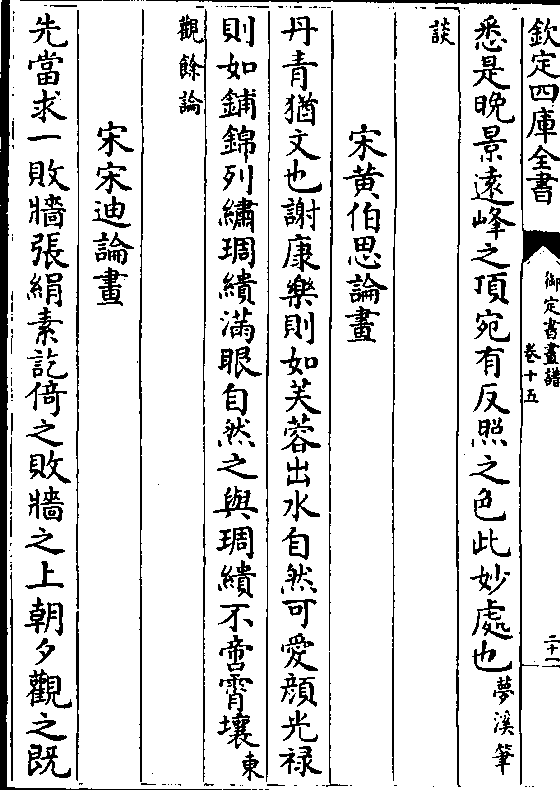 欽定四庫全書
御定書畫譜
卷十五
二十一
悉是晚景遠峰之頂宛有反照之色此妙處也夢溪筆
談
宋黄伯思論畫
丹青猶文也謝康樂則如芙蓉出水自然可愛顔光禄
則如鋪錦列繡琱繢滿眼自然之與琱繢不啻霄壤東
觀餘論
宋宋迪論畫
先當求一敗牆張絹素訖倚之敗牆之上朝夕觀之既